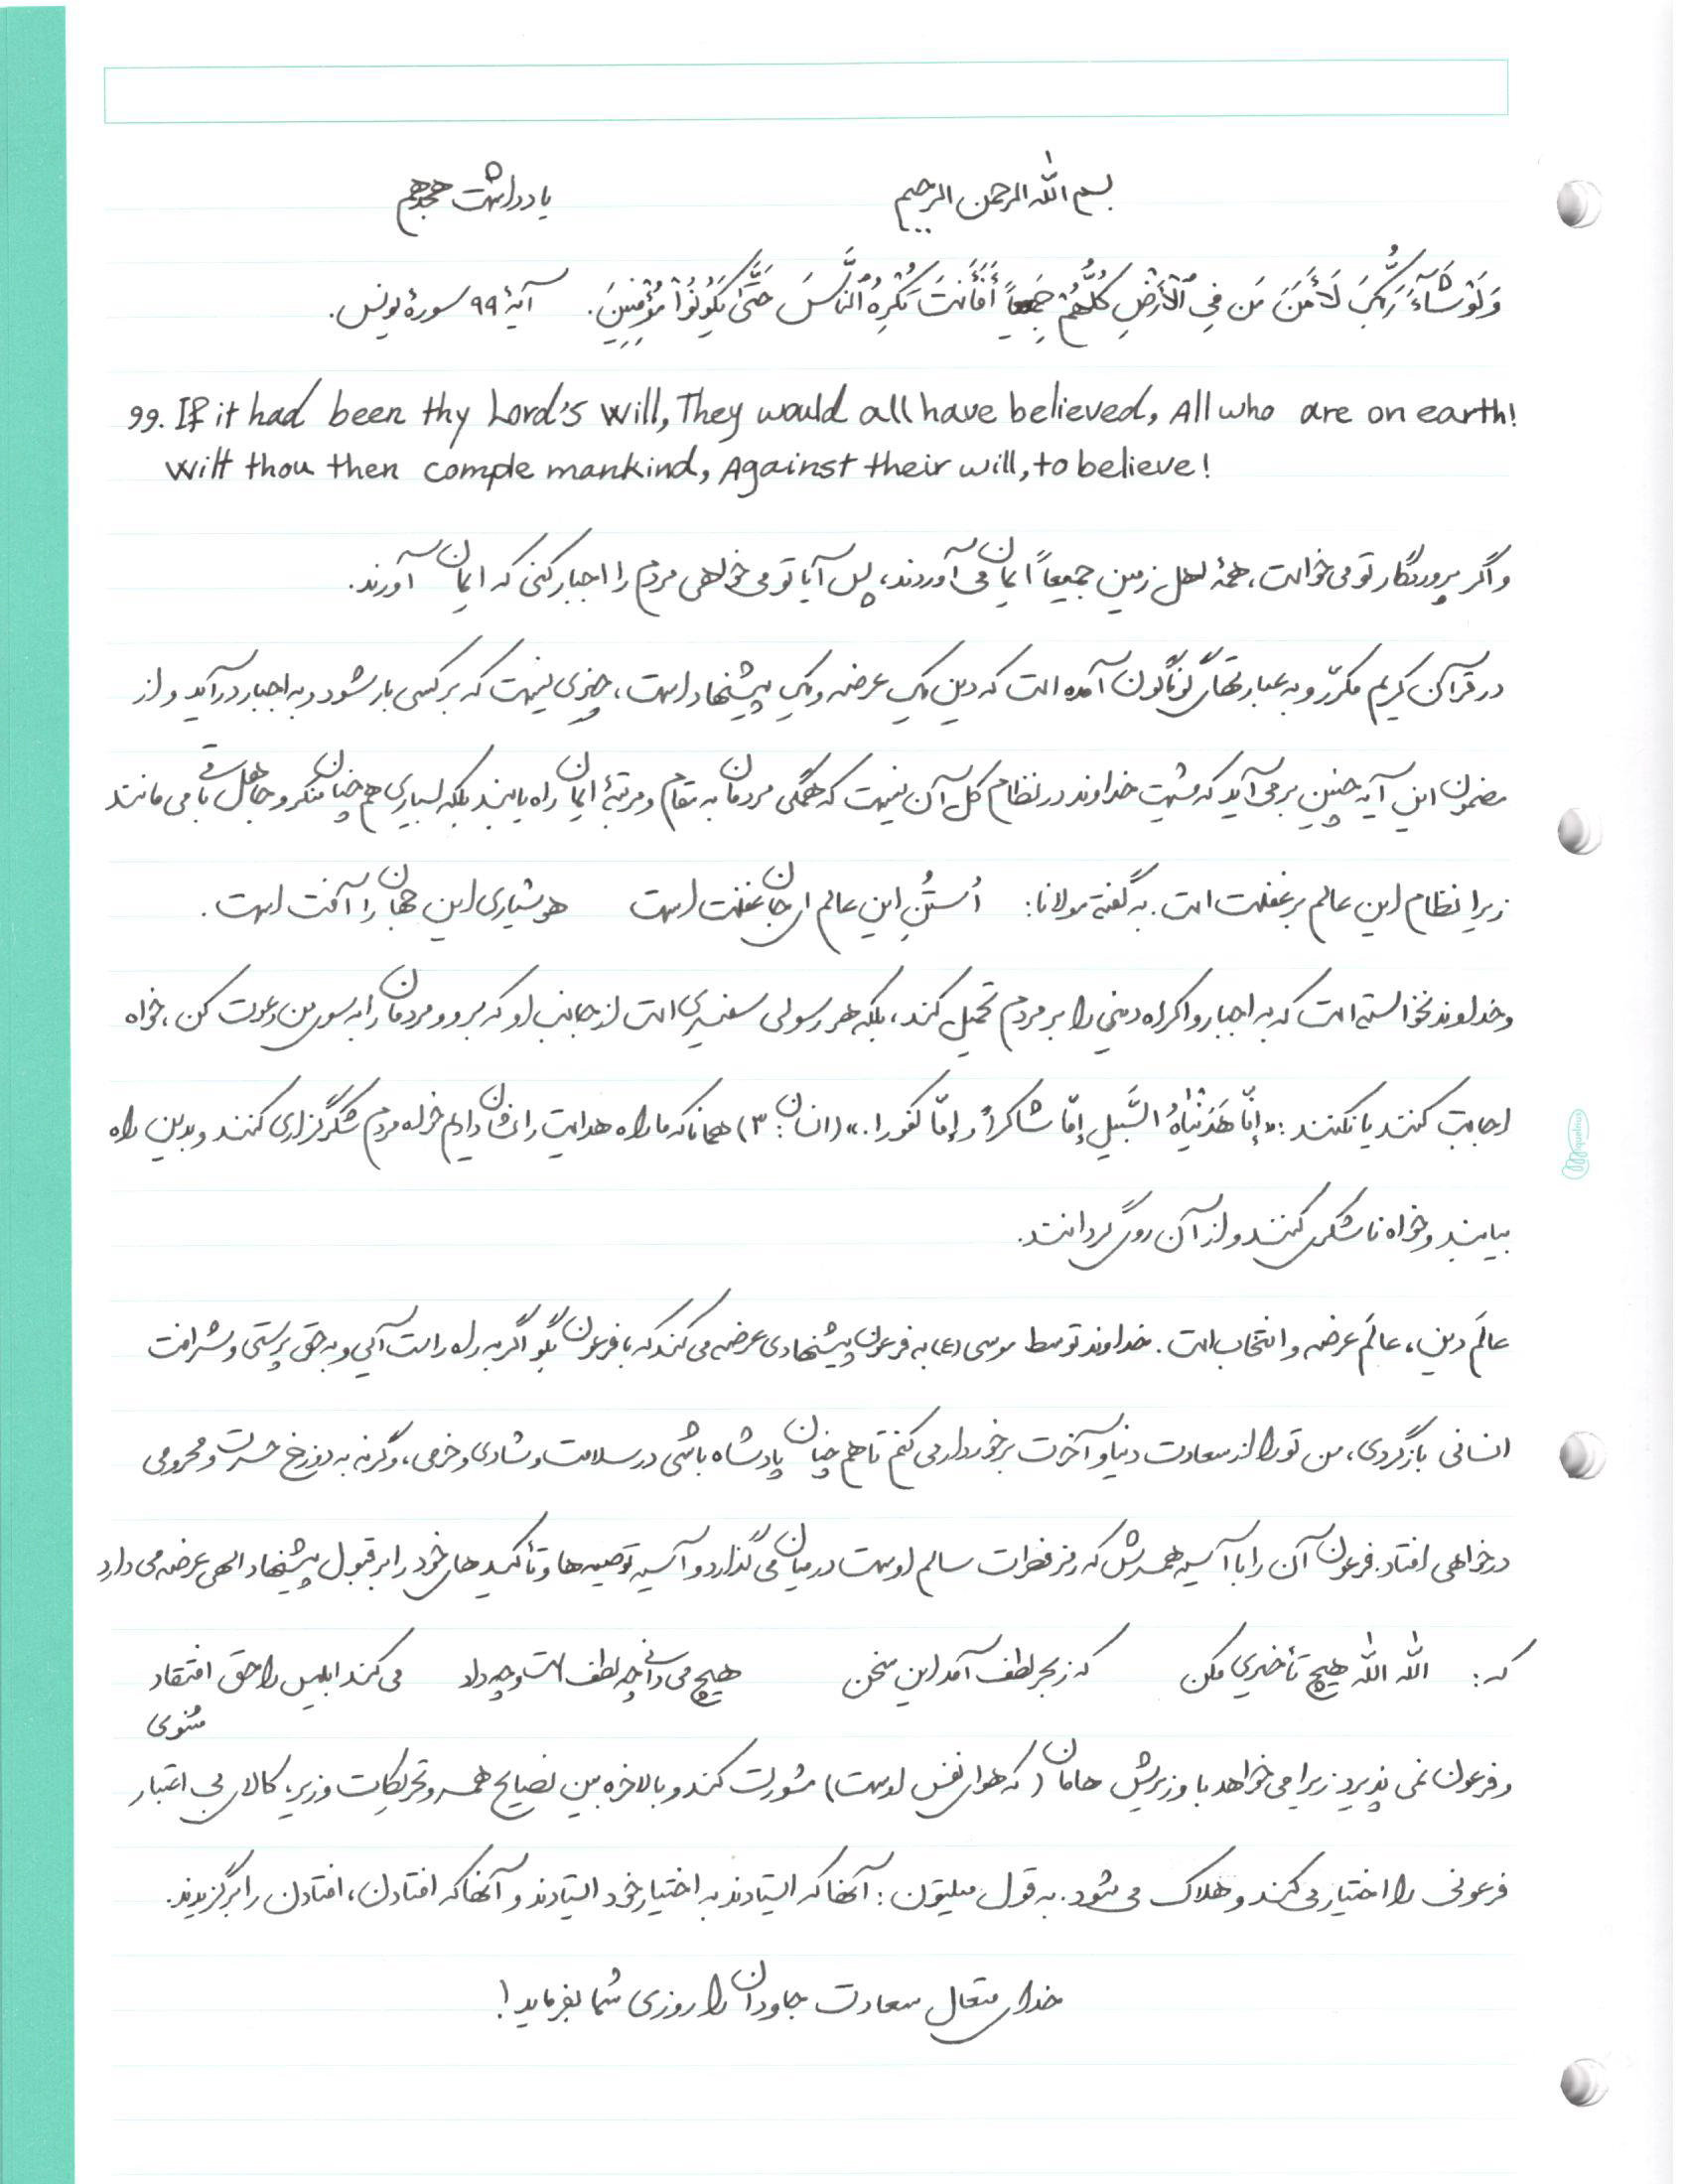 بسم الله الرحمن الرحیم
یادداشت هجدهم
وَلَوْ شَآءَ رَبُّكَ لَأٓمَنَ مَن فِي ٱلْأَرْضِ كُلُّهُمْ جَمِيعاً أَفَأَنتَ تُكْرِهُ ٱلنَّاسَ حَتَّىٰ يَكُونُوا۟ مُؤْمِنِينَ. آیهٔ ۹۹ سورهٔ یونس.
99. If it had been thy Lord's will, They would all have believed, All who are on earth!
Wilt thou then comple mankind, Against their will, to believe!
و اگر پروردگار تو می‌خواست، همهٔ اهل زمین جمیعاً ایمان می‌آوردند، پس آیا تو می‌خواهی مردم را اجبار کنی که ایمان آورند.
در قرآن کریم مکرّر و به عبارتهای گوناگون آمده است که دین یک عرضه و یک پیشنهاد است، چیزی نیست که بر کسی بار شود و به اجبار درآید و از
مضمون این آیه چنین برمی‌آید که مشیت خداوند در نظام کل آن نیست که همگی مردمان به مقام و مرتبهٔ ایمان راه یابند بلکه بسیاری هم چنان منکر و جاهل باقی می‌مانند
زیرا نظام این عالم بر غفلت است. به گفتهٔ مولانا: اُستُنِ این عالم ای جان غفلت است هوشیاری این جهان را آفت است.
و خداوند نخواسته است که به اجبار و اکراه دینی را بر مردم تحمیل کند، بلکه هر رسولی سفیری است از جانب او که برو و مردمان را به سوی من دعوت کن، خواه
اجابت کنند یا نکنند: «إنّا هَدَیْنٰاهُ السَّبیل إمّا شاکراً و إمّا کفورا.» (انسان: ۳) همانا که ما راه هدایت را نشان دادیم خواه مردم شکرگزاری کنند و بدین راه
بیایند و خواه ناشکری کنند و از آن روی گردانند.
عالَم دین، عالَم عرضه و انتخاب است. خداوند توسط موسی (ع) به فرعون پیشنهادی عرضه می‌کند که با فرعون بگو اگر به راه راست آیی و به حق پرستی و شرافت
انسانی بازگردی، من تو را از سعادت دنیا و آخرت برخوردار می کنم تا هم چنان پادشاه باشی در سلامت و شادی و خرمی، وگرنه به دوزخ حسرت و محرومی
در خواهی افتاد. فرعون آن را با آسیه همسرش که رمز فطرات سالم اوست در میان می گذارد و آسیه توصیه‌ها و تأکیدهای خود را بر قبول پیشنهاد الهی عرضه می دارد
که: الله الله هیچ تأخیری مکن که ز بحر لطف آمد این سخن هیچ می‌دانی چه لطف است و چه داد می کند ابلیس را حق افتقاد
مثنوی
و فرعون نمی پذیرد زیرا می خواهد با وزیرش هامان (که هوای نفس اوست) مشورت کند و بالاخره بین نصایح همسر و تحریکات وزیر، کالای بی اعتبار
فرعونی را اختیار می کند و هلاک می شود. به قول میلتون: آنها که ایستادند به اختیار خود ایستادند و آنها که افتادن، افتادن را برگزیدند.
خدای متعال سعادت جاودان را روزی شما بفرماید!